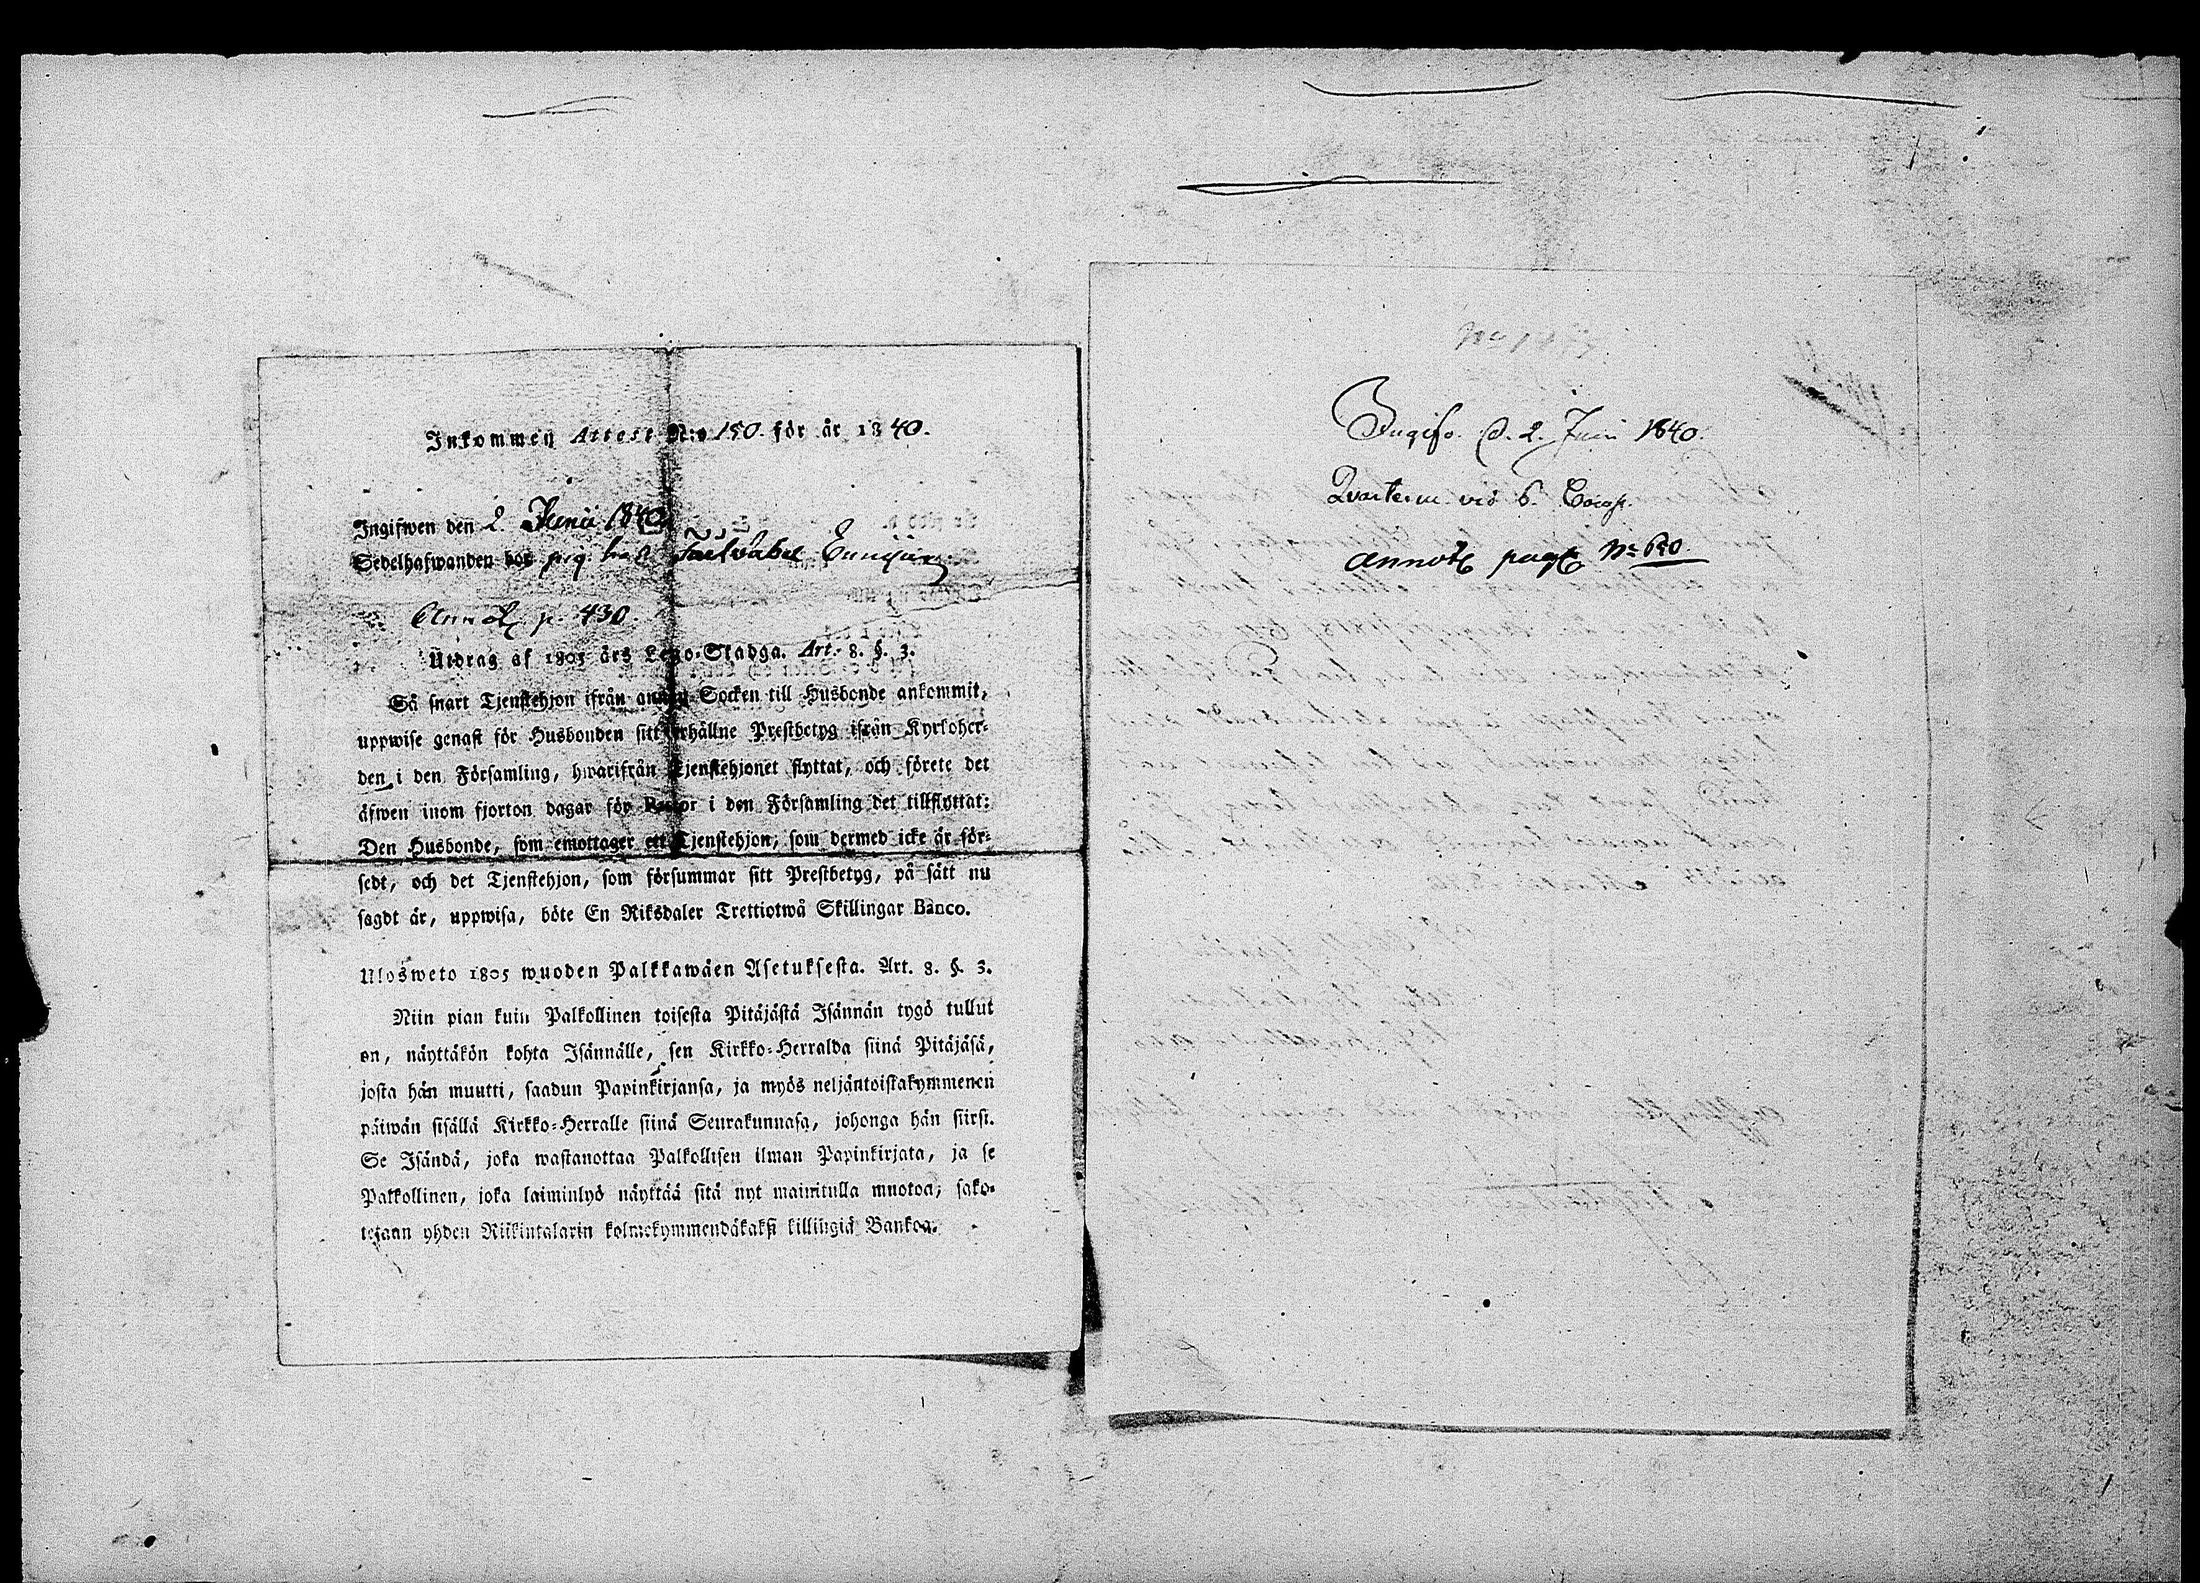 Inkommen Attest N:o 150. för år 1840.
Ingifwen den 2 Junii 1840
Sedelhafwanden hos
Annot. p. 430.
Utdrag af 1805 års Lego-Stadga. Art. 8. §. 3.
Så snart Tjenstehjon ifrån annan Socken till Husbonde ankommit,
uppwise genast för Husbonden sitt erhållne Prestbetyg ifrån Kyrkoher-
den i den Församling, hwarifrån Tjenstehjonet flyttat, och förete det
äfwen inom fjorton dagar för Pastor i den Församling det tillflyttat:
Den Husbonde, som emottager ett Tjenstehjon, som dermed icke är för-
sedt, och det Tjenstehjon, som försummar sitt Prestbetyg, på sätt nu
sagdt är, uppwisa, böte En Riksdaler Trettiotwå Skillingar Banco.
Ulosweto 1805 wuoden Palkkawäen Asetuksesta. Art. 8. §. 3.
Niin pian kuin Palkollinen toisesta Pitäjästä Isännän tygö tullut
on, näyttäkön kohta Isännälle, sen Kirkko-Herralda siinä Pitäjäsä,
josta hän muutti, saadun Papinkirjansa, ja myös neljäntoistakymmenen
päiwän sisällä Kirkko-Herralle siinä Seurakunnasa, johonga hän siirsi.
Se Isändä, joka wastanottaa Palkollisen ilman Papinkirjata, ja se
Palkollinen, joka laiminlyö näyttää sitä nyt mainitulla muotoa, sako-
tetaan yhden Riikintalarin kolmekymmendäkaksi killingiä Bankoa.
Ingifv. d. 2 Juni 1840.
Qvarteru vid 6. Comp.
Annot. pag. No 650.